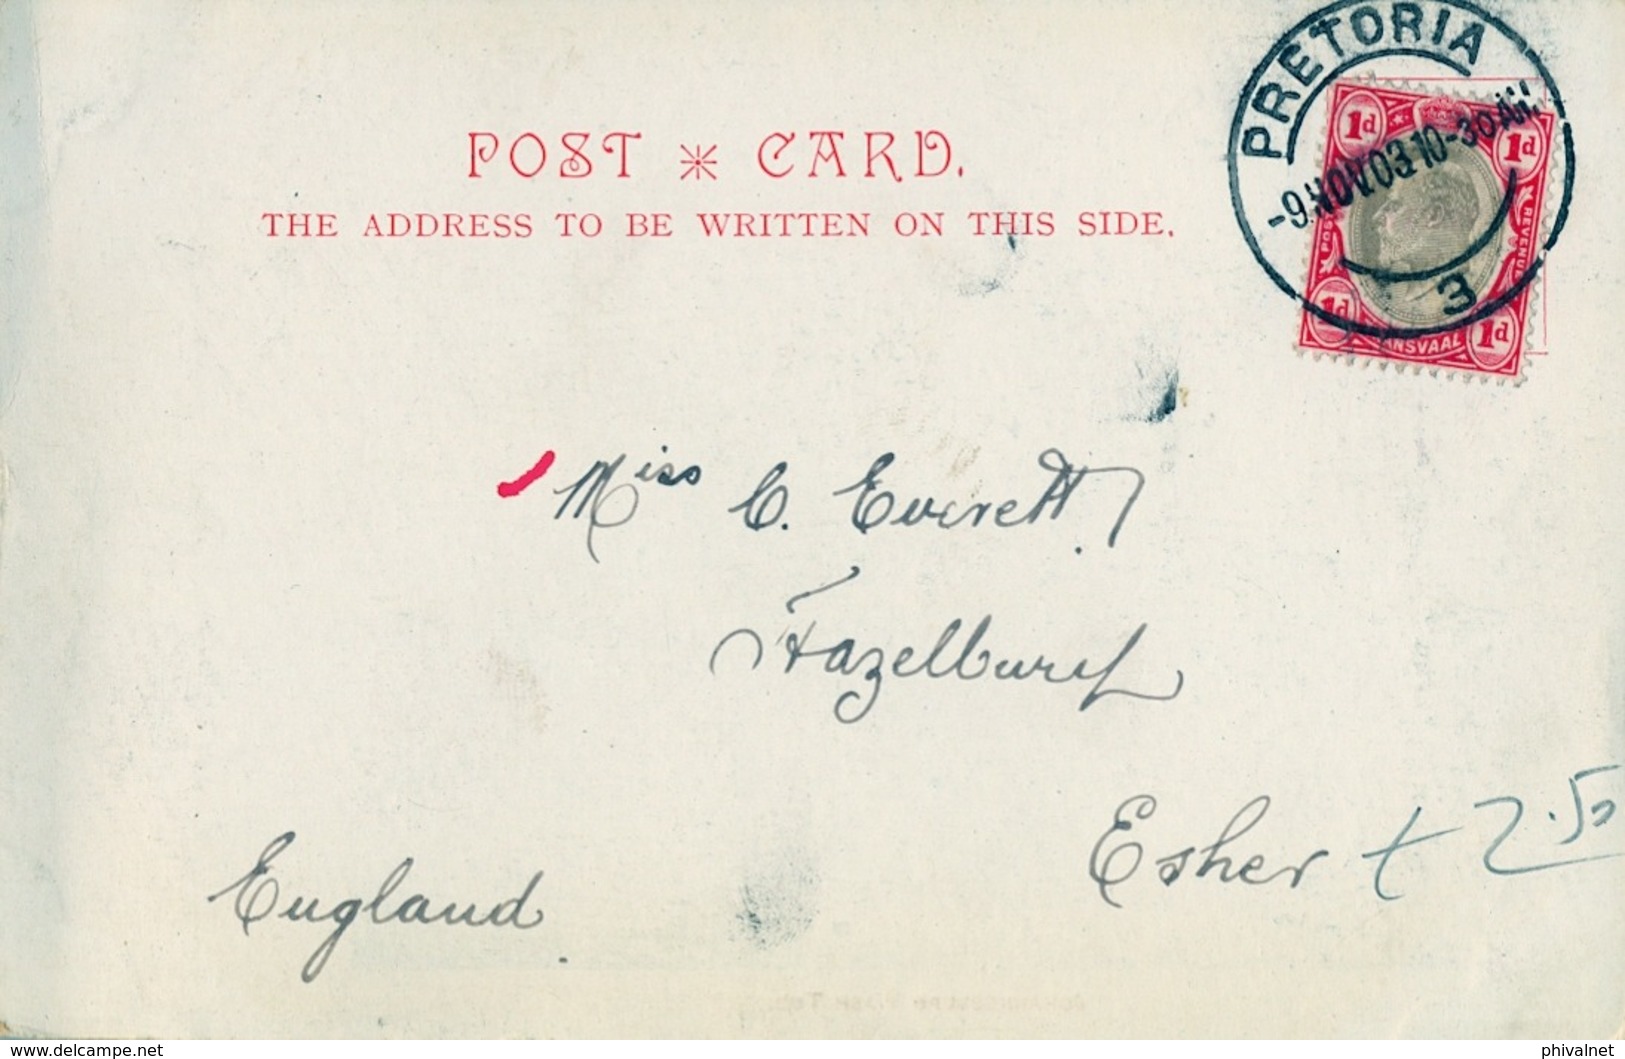 PRETORIA
-9.NOV.03.10-30AM.
3
1d 1d
REVENUE
1d 1d
POST ✳ CARD.
THE ADDRESS TO BE WRITTEN ON THIS SIDE.
Miss C. Everett
Esher + 2.50
England.
delcampe.net
phivalnet